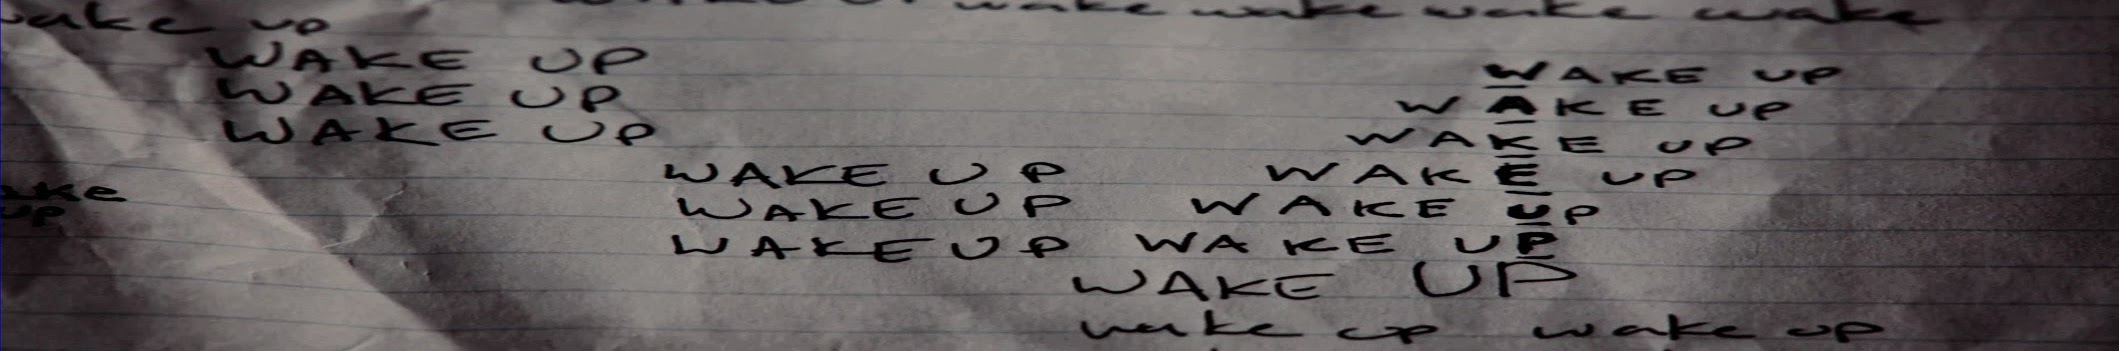 wake wake wake wake
wake up
WAKE UP
WAKE UP
WAKE UP
WAKE UP
WAKE UP
WAKE UP
WAKE UP WAKE UP
up
WAKE UP WAKE UP
WAKE UP WAKE UP
WAKE UP
wake up wake up